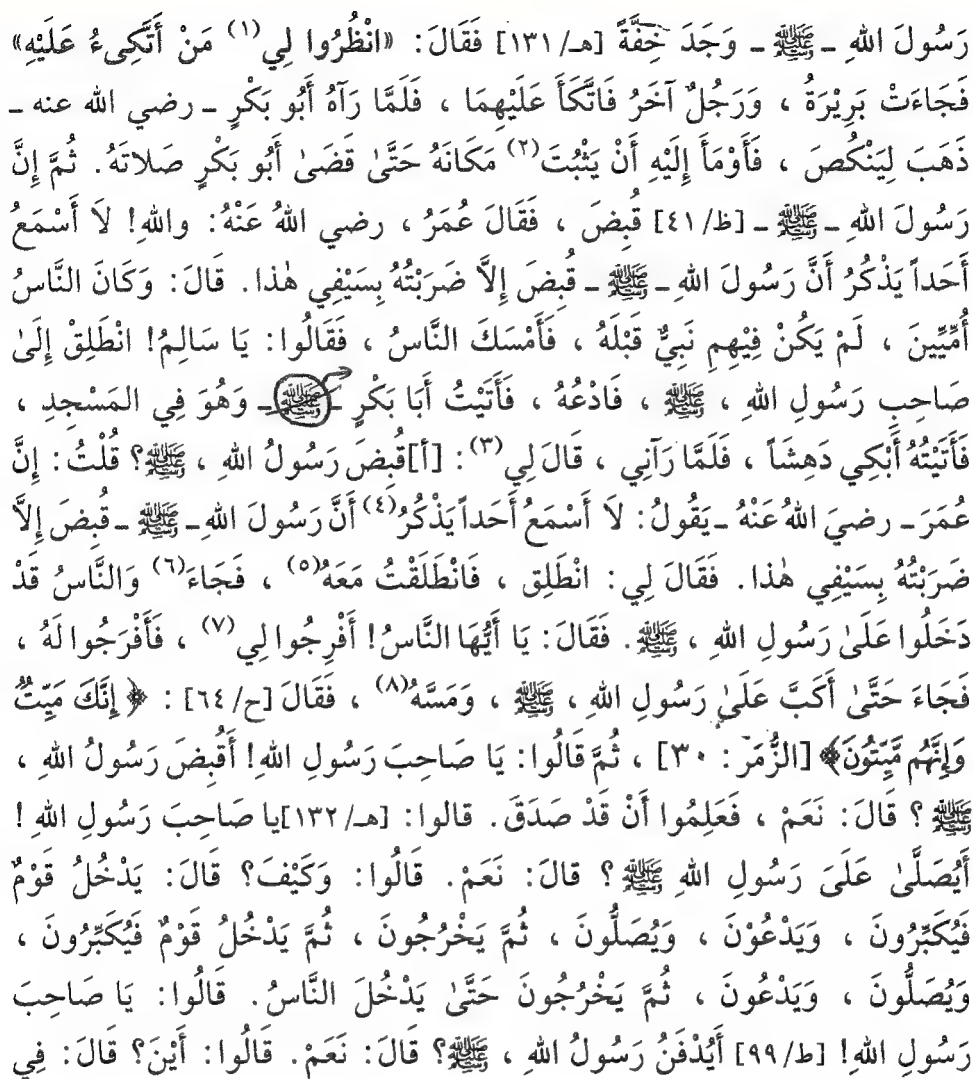 رَسُولَ اللهِ ـ ﷺ ـ وَجَدَ خِفَّةً [هـ/١٣١] فَقَالَ: «انْظُرُوا لِي(١) مَنْ أَتَّكِىءُ عَلَيْهِ»
فَجَاءَتْ بَرِيْرَةُ ، وَرَجُلٌ آخَرُ فَاتَّكَأَ عَلَيْهِمَا ، فَلَمَّا رَآهُ أَبُو بَكْرٍ ـ رضي الله عنه ـ
ذَهَبَ لِيَنْكُصَ ، فَأَوْمَأَ إِلَيْهِ أَنْ يَثْبُتَ(٢) مَكَانَهُ حَتَّىٰ قَضَىٰ أَبُو بَكْرٍ صَلاتَهُ. ثُمَّ إِنَّ
رَسُولَ اللهِ ـ ﷺ ـ [ظ/٤١] قُبِضَ ، فَقَالَ عُمَرُ ، رضي اللهُ عَنْهُ: واللهِ! لاَ أَسْمَعُ
أَحَداً يَذْكُرُ أَنَّ رَسُولَ اللهِ ـ ﷺ ـ قُبِضَ إِلاَّ ضَرَبْتُهُ بِسَيْفِي هٰذا. قَالَ: وَكَانَ النَّاسُ
أُمِّيِّينَ ، لَمْ يَكُنْ فِيْهِم نَبِيٌّ قَبْلَهُ ، فَأَمْسَكَ النَّاسُ ، فَقَالُوا: يَا سَالِمُ! انْطَلِقْ إِلَىٰ
صَاحِبِ رَسُولِ اللهِ ، ﷺ ، فَادْعُهُ ، فَأَتَيْتُ أَبَا بَكْرٍ ـ ﷺ ـ وَهُوَ فِي المَسْجِدِ ،
فَأَتَيْتُهُ أَبْكِي دَهِشَاً ، فَلَمَّا رَآنِي ، قَالَ لِي(٣): [أَ]قُبِضَ رَسُولُ اللهِ ، ﷺ؟ قُلْتُ: إِنَّ
عُمَرَ ـ رضيَ اللهُ عَنْهُ ـ يَقُولُ: لاَ أَسْمَعُ أَحَداً يَذْكُرُ(٤) أَنَّ رَسُولَ اللهِ ـ ﷺ ـ قُبِضَ إِلاَّ
ضَرَبْتُهُ بِسَيْفِي هٰذا. فَقَالَ لِي: انْطَلِق ، فَانْطَلَقْتُ مَعَهُ(٥) ، فَجَاءَ(٦) وَالنَّاسُ قَدْ
دَخَلُوا عَلَىٰ رَسُولِ اللهِ ، ﷺ. فَقَالَ: يَا أَيُّهَا النَّاسُ! أَفْرِجُوا لِي(٧) ، فَأَفْرَجُوا لَهُ ،
فَجَاءَ حَتَّىٰ أَكَبَّ عَلَىٰ رَسُولِ اللهِ ، ﷺ ، وَمَسَّهُ(٨) ، فَقَالَ [ح/٦٤]: ﴿إِنَّكَ مَيِّتٌ
وَإِنَّهُم مَّيِّتُونَ﴾ [الزُّمَر: ٣٠] ، ثُمَّ قَالُوا: يَا صَاحِبَ رَسُولِ اللهِ! أَقُبِضَ رَسُولُ اللهِ ،
ﷺ ؟ قَالَ: نَعَمْ ، فَعَلِمُوا أَنْ قَدْ صَدَقَ. قالوا: [هـ/١٣٢] يا صَاحِبَ رَسُولِ اللهِ !
أَيُصَلَّىٰ عَلَىَ رَسُولِ اللهِ ﷺ ؟ قالَ: نَعَمْ. قَالُوا: وَكَيْفَ؟ قَالَ: يَدْخُلُ قَوْمٌ
فَيُكَبِّرُونَ ، وَيَدْعُوْنَ ، وَيُصَلُّونَ ، ثُمَّ يَخْرُجُونَ ، ثُمَّ يَدْخُلُ قَوْمٌ فَيُكَبِّرُونَ ،
وَيُصَلُّونَ ، وَيَدْعُونَ ، ثُمَّ يَخْرُجُونَ حَتَّىٰ يَدْخُلَ النَّاسُ. قَالُوا: يَا صَاحِبَ
رَسُولِ اللهِ! [ط/٩٩] أَيُدْفَنُ رَسُولُ اللهِ ، ﷺ؟ قَالَ: نَعَمْ. قَالُوا: أَيْنَ؟ قَالَ: فِي